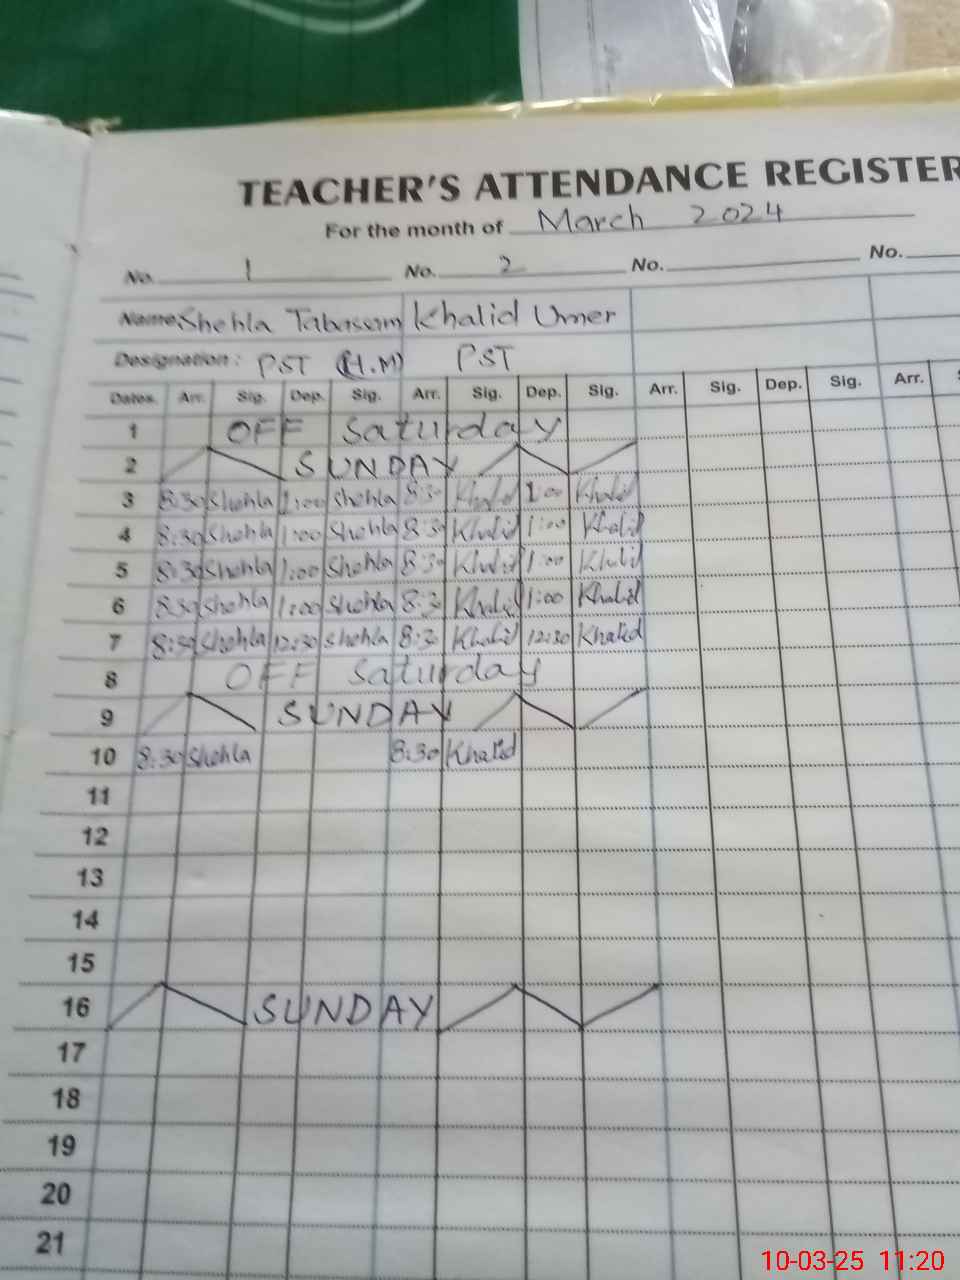 TEACHER'S ATTENDANCE REGISTER
For the month of March 2024
No. 1 No. 2 No. No.
Name: Shehla Tabassam Khalid Umer
Designation : PST (H.M) PST
Dates. Arr. Sig. Dep. Sig. Arr. Sig. Dep. Sig. Arr. Sig. Dep. Sig. Arr.
1 OFF Saturday
2 SUNDAY
3 8:30 Shehla 1:00 Shehla 8:30 Khalid 1:00 Khalid
4 8:30 Shehla 1:00 Shehla 8:30 Khalid 1:00 Khalid
5 8:30 Shehla 1:00 Shehla 8:30 Khalid 1:00 Khalid
6 8:30 Shehla 1:00 Shehla 8:30 Khalid 1:00 Khalid
7 8:30 Shehla 12:30 Shehla 8:30 Khalid 12:30 Khalid
8 OFF Saturday
9 SUNDAY
10 8:30 Shehla 8:30 Khalid
11
12
13
14
15
16 SUNDAY
17
18
19
20
21
10-03-25 11:20